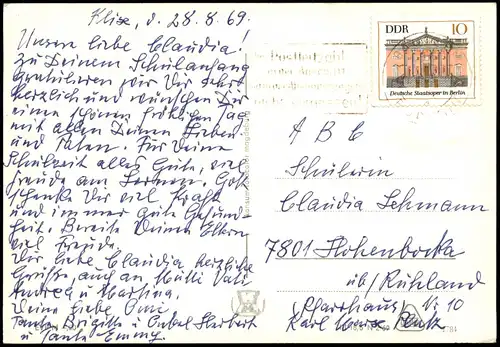 d. 28. 8. 69.
Unsere liebe Claudia!
Zu Deinem Schulanfang
gratulieren wir Dir sehr
herzlich und wünschen Dir
einen schönen fröhlichen Tag
mit allen Deinen Lieben
und Paten. Für Deine
Schulzeit alles Gute, viel
Freude am Lernen. Gott
schenke Dir viel Kraft
und immer gute Gesund
heit. Bereite Deinen Eltern
viel Freude.
Dir liebe Claudia herzliche
Grüße, auch an Mutti Vati
Andrea u Martina.
Deine liebe Omi
Tante Brigitte u Onkel Herbert
u Tante Emmy
DDR 10
Deutsche Staatsoper in Berlin
A B C
Schülerin
Claudia Lehmann
7801 Hohenbocka
üb/Ruhland
Pfarrhaus Nr 10
Karl Marx